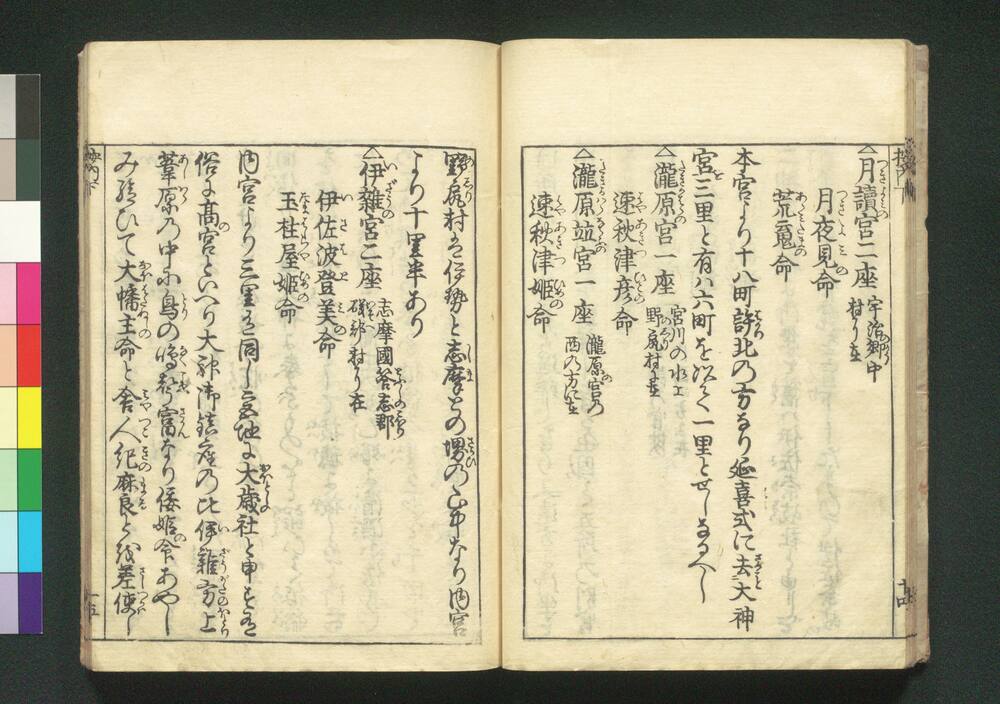 △月讀宮二座 宇治郷中
村に在
月夜見命
荒魂命
本宮より十八町許北の方なり延喜式に去大神
宮三里と有ハ六町を以て一里と せしなるへし
△瀧原宮一座 宮川の水上
野尻村に在
速秋津彦命
△瀧原竝宮一座 瀧原宮の
西の方に在
速秋津姫命
野尻村は伊勢と志摩との堺の山中なり内宮
より十里半あり
△伊雜宮二座 志摩國荅志郡
磯部村に在
伊佐波登美命
玉柱屋姫命
内宮より三里を同し 地に大歳社と申
俗に高宮といへり大神御鎮座の比伊雜方上
葦原の中に鳥の鳴聲高なり倭姫命あやし
み給ひて大幡主命と舎人紀麻良とを差使し
十四
十五